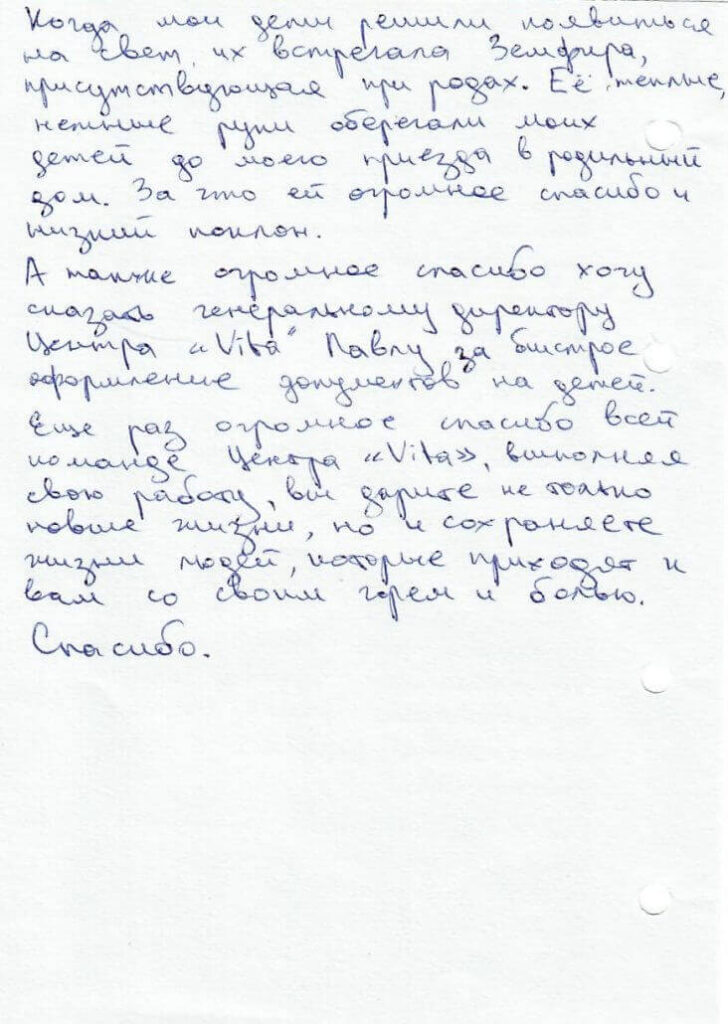 Когда мои дети решили появиться
на свет, их встречала Земфира,
присутствующая при родах. Её теплые,
нежные руки оберегали моих
детей до моего приезда в родильный
дом. За что ей огромное спасибо и
низкий поклон.
А также огромное спасибо хочу
сказать генеральному директору
Центра «Vita" Павлу за быстрое
оформление документов на детей.
Еще раз огромное спасибо всей
команде Центра «Vita», выполняя
свою работу, вы дарите не только
новые жизни, но и сохраняете
жизни людей, которые приходят к
вам со своим горем и болью.
Спасибо.